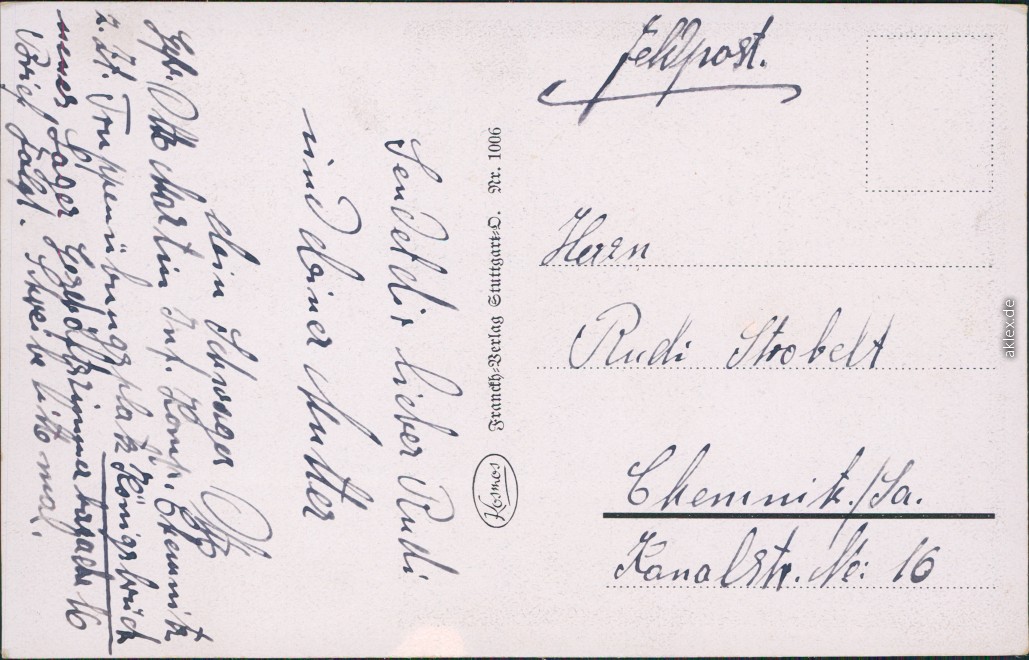 Feldpost.
Herrn
Rudi Strobelt
Chemnitz/Sa.
Kanalstr. No: 16
Kosmos
Franckh-Verlag Stuttgart-O. Nr. 1006
Sendet dir lieber Rudi
und deiner Mutter
dein Schwager Otto
Gefr. Otto Martin Inf. Komp. Chemnitz
z. Zt. Truppenübungsplatz Königsbrück
neues Lager 16
Brief folgt. Schreibe bitte mal.
aklex.de